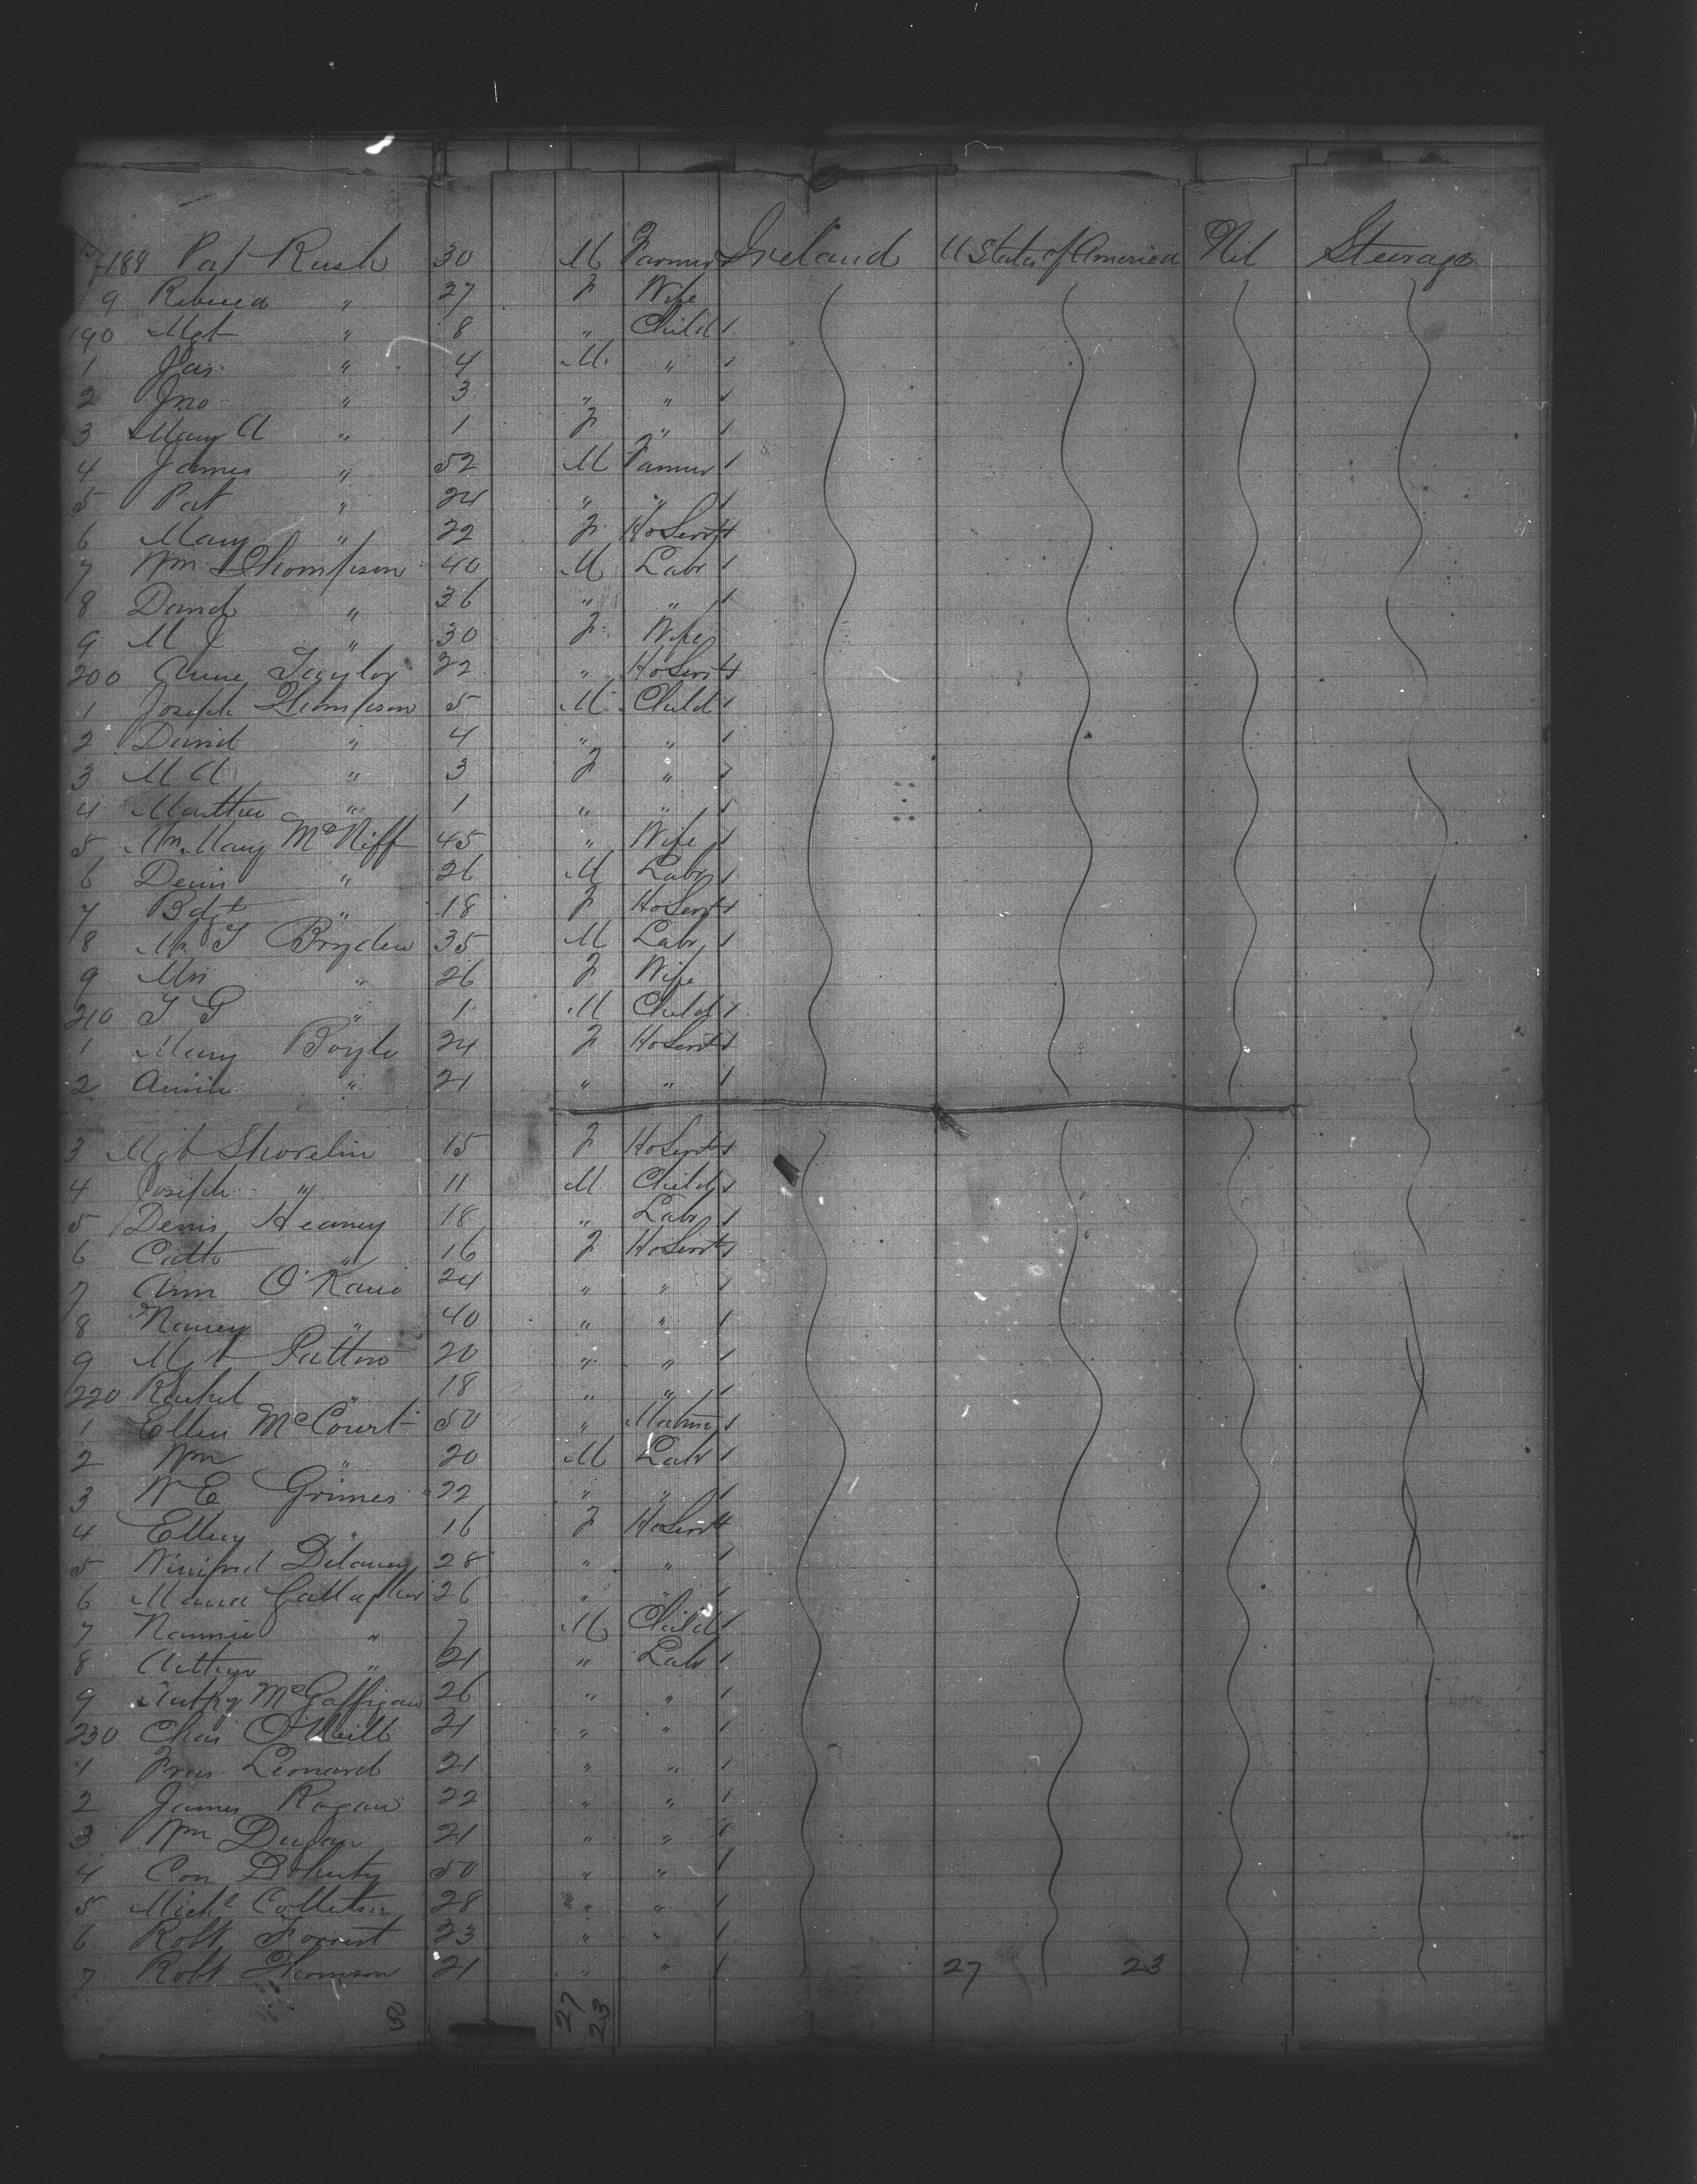 188 Pat Rush 30 M Farmer 1 Ireland U States of America Nil Steerage
9 Rebecca " 27 F Wife
190 Mgt " 8 " Child 1
1 Jas " 4 M " 1
2 Jno " 3 " " 1
3 Mary A " 1 F " 1
4 James " 52 M Farmer 1
5 Pat " 24 " " 1
6 Mary " 22 F HoServt 1
7 Wm Thompson 40 M Labr 1
8 David " 36 " " 1
9 M J " 30 F Wife
200 Anne Taylor 22 " HoServt 1
1 Joseph Thompson 5 M Child 1
2 David " 4 " " 1
3 M A " 3 F " 1
4 " 1 " " 1
5 Mrs Mary McNiff 45 " Wife 1
6 Denis " 26 M Labr 1
7 Bdgt " 18 F HoServt 1
8 Mr T Bryden 35 M Labr 1
9 Mrs " 26 F Wife
210 T G " 1 M Child 1
1 Mary Boyle 24 F HoServt 1
2 Annie " 21 " " 1
3 Mgt 15 F HoServt 1
4 Joseph " 11 M Child 1
5 Denis Heaney 18 " Labr 1
6 Cath " 16 F HoServt 1
7 Ann O'Kane 24 " " 1
8 Nancy " 40 " " 1
9 Mgt Patton 20 " " 1
220 Rachel " 18 " " 1
1 Ellen McCourt 50 " Matron 1
2 Wm " 20 M Labr 1
3 W E Grimes 22 " " 1
4 Ellen " 16 F HoServt 1
5 Winifred Delaney 28 " " 1
6 Maria Gallagher 26 " " 1
7 Nannie " 7 M Child 1
8 Arthur " 21 " Labr 1
9 McGaffigan 26 " " 1
230 Chas O'Neill 21 " " 1
1 Fras Leonard 21 " " 1
2 James Rogan 22 " " 1
3 Wm Dugan 21 " " 1
4 Con Doherty 50 " " 1
5 Michl 28 " " 1
6 Robt Forrest 23 " " 1
7 Robt Thomson 21 " " 1 27 23
50 27 23